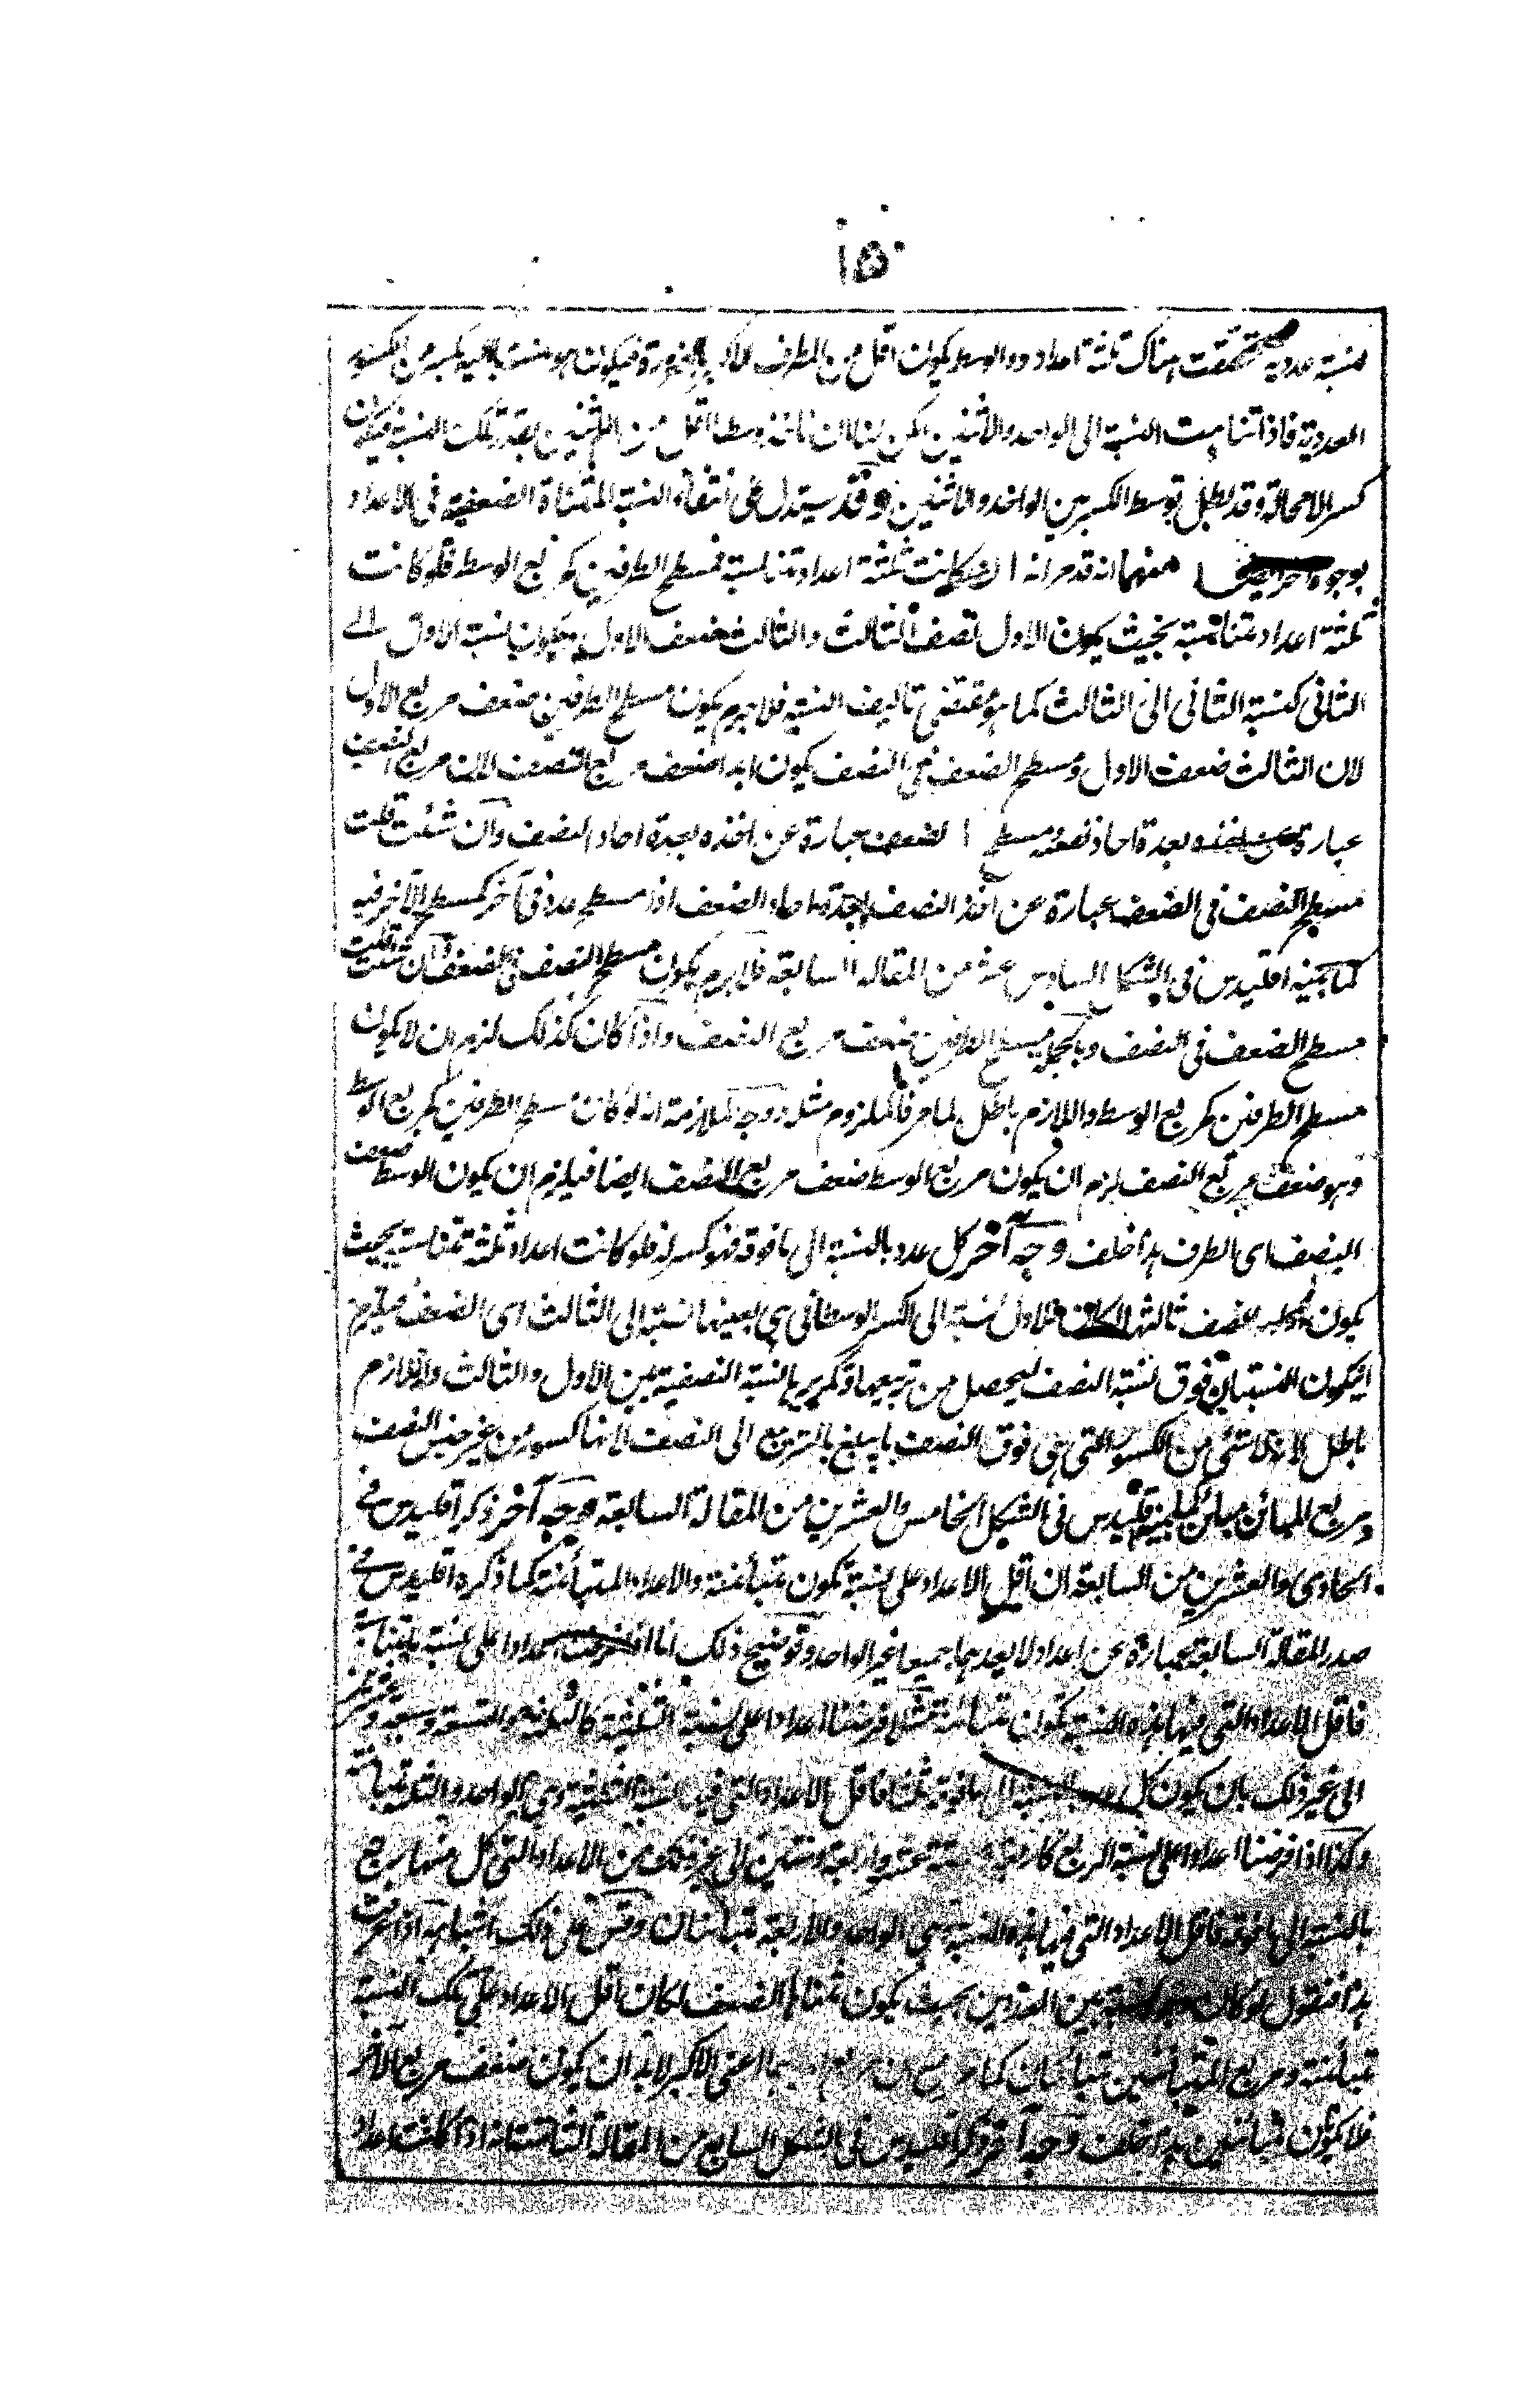 ١٥٠
نسبة عددية تحققت هناك ثلثة اعداد والوسط يكون اقل من الطرف الاكبر بالضرورة فيكون هو منسبا اليه بكسر من الكسور
العددية فاذا تناسبت النسبة الى الواحد والاثنين امكن لنا ان ناخذ وسطا اقل من الاثنين بقدر تلك النسبة فيكون
كسرا لا محالة وقد بطل توسط الكسر بين الواحد والاثنين وقد يستدل على انتفاء النسبة المثناة الضعفية في الاعداد
بوجوه اخر ايضا منها انه قد مر انه اذا كانت ثلثة اعداد متناسبة فمسطح الطرفين كمربع الوسط فلو كانت
ثلثة اعداد متناسبة بحيث يكون الاول نصف الثالث والثالث ضعف الاول ويكون نسبة الاول الى
الثاني كنسبة الثاني الى الثالث كما هو مقتضى تاليف النسبة فلا جرم يكون مسطح الطرفين ضعف مربع الاول
لان الثالث ضعف الاول ومسطح الضعف في النصف يكون ابدا ضعف مربع النصف لان مربع النصف
عبارة عن اخذه بعدة احاد نفسه ومسطح الضعف عبارة عن اخذه بعدة احاد النصف وان شئت قلت
مسطح النصف في الضعف عبارة عن اخذ النصف بعدة احاد الضعف اذا مسطح عدد في آخر كمسطح الآخر فيه
كما بينه اقليدس في الشكل السادس عشر من المقالة السابعة فلا جرم يكون مسطح النصف في الضعف او ان شئت قلت
مسطح الضعف في النصف وبالجملة مسطح الطرفين ضعف مربع النصف واذا كان كذلك لزم ان لا يكون
مسطح الطرفين كمربع الوسط واللازم باطل لما مر فالملزوم مثله ووجه الملازمة انه لو كان مسطح الطرفين كمربع الوسط
وهو ضعف مربع النصف لزم ان يكون مربع الوسط ضعف مربع النصف ايضا فيلزم ان يكون الوسط ضعف
النصف اى الطرف هذا خلف وجه آخر كل عدد بالنسبة الى ما فوقه فهو كسر له فلو كانت اعداد ثلثة متناسبة بحيث
يكون اولها نصف ثالثها لكان للاول نسبة الى الكسر الوسطاني هي بعينها نسبته الى الثالث اى الضعف فيلزم
ان يكون النسبتان فوق نسبة النصف ليحصل من تربيعهما وتكريرهما النسبة النصفية بين الاول والثالث واللازم
باطل لانه لا شئ من الكسور التي هي فوق النصف ما يبلغ بالتربيع الى النصف لانها كسور من غير جنس النصف
ومربع المبائن مبائن كما بينه اقليدس في الشكل الخامس والعشرين من المقالة السابعة وجه آخر ذكر اقليدس في
الحادى والعشرين من السابعة ان اقل الاعداد على نسبة تكون متبائنة والاعداد المتبائنة كما ذكره اقليدس في
صدر المقالة السابعة عبارة عن اعداد لا يعدهما جميعا غير الواحد وتوضيح ذلك انا اذا فرضنا اعدادا على نسبة متناسبة
فاقل الاعداد التي فيها هذه النسبة تكون متبائنة مثلا فرضنا اعدادا على نسبة الثلثية كالثلثة والتسعة وسبعة وعشرين
الى غير ذلك بان يكون كل بالنسبة الى ما فوقه ثلثا فاقل الاعداد التي فيها نسبة الثلثية وهي الواحد والثلثة متبائنة
وكذا اذا فرضنا اعدادا على نسبة الربع كاربعة وستة عشر واربعة وستين الى غير ذلك من الاعداد التي كل منها ربع
بالنسبة الى ما فوقه فاقل الاعداد التي فيها هذه النسبة هي الواحد والاربعة متبائنان وقس على ذلك اشباهه اذا عرفت
هذا فنقول لو كان نسبة بين العددين بحيث يكون مثناها الضعف لكان اقل الاعداد على تلك النسبة
متبائنة ومربع المتبائنين متبائنان كما مر اعنى الاكبر لابد ان يكون ضعف مربع الآخر
فلا يكونان متبائنين هذا خلف وجه آخر ذكر اقليدس في الشكل السابع من المقالة الثامنة انه اذا كانت اعداد